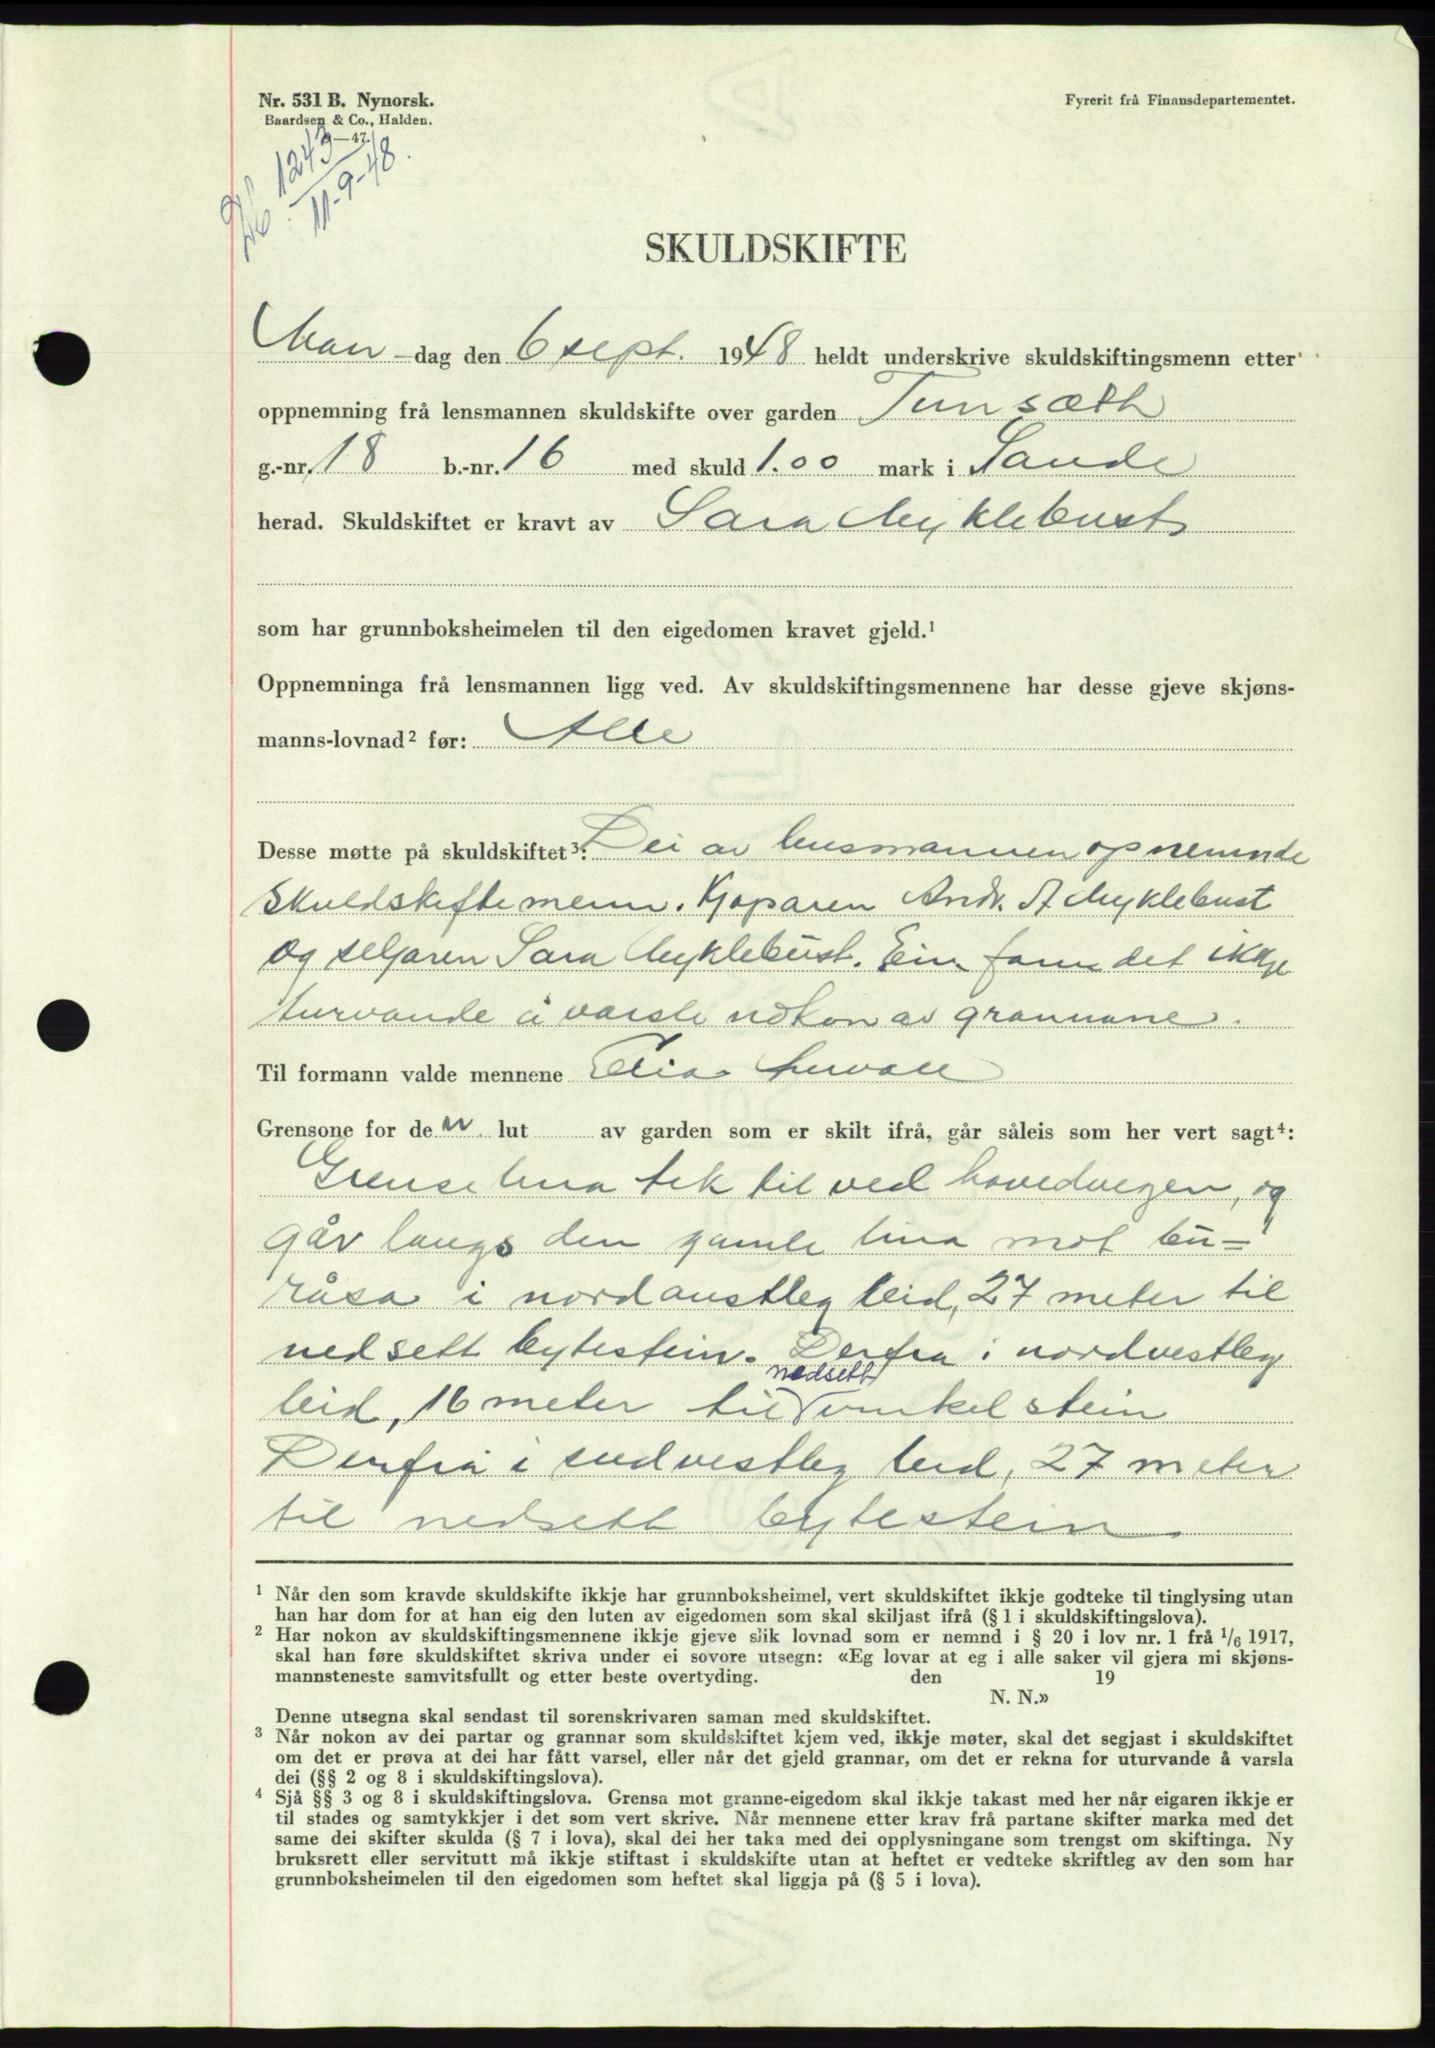 Nr. 531 B. Nynorsk.
Baardsen & Co., Halden.
—47.
1243
11-9-48.
Fyrerit frå Finansdepartementet.
SKULDSKIFTE
Man-dag den 6 sept. 1948 heldt underskrive skuldskiftingsmenn etter
oppnemning frå lensmannen skuldskifte over garden Tunsæth
g.-nr. 18 b.-nr. 16 med skuld 1.00 mark i Sande
herad. Skuldskiftet er kravt av Sara Myklebust
som har grunnboksheimelen til den eigedomen kravet gjeld.¹
Oppnemninga frå lensmannen ligg ved. Av skuldskiftingsmennene har desse gjeve skjøns-
manns-lovnad² før: Alle
Desse møtte på skuldskiftet³: Dei av lensmannen opnemnde
Skuldskiftemenn. Kjøparen Andr. A Myklebust
og seljaren Sara Myklebust. Ein fann det ikkje
turvande å varsle nokon av grannane.
Til formann valde mennene Elias
Grensone for den lut av garden som er skilt ifrå, går såleis som her vert sagt⁴:
Grenselina tek til ved hovedvegen, og
går langs den gamle lina mot bu-
råsa i nordaustleg leid, 27 meter til
nedsett bytestein. Derfra i nordvestleg
nedsett
leid, 16 meter til √ vinkelstein
Derfrå i sudvestleg leid, 27 meter
til nedsett bytestein.
¹ Når den som kravde skuldskifte ikkje har grunnboksheimel, vert skuldskiftet ikkje godteke til tinglysing utan
han har dom for at han eig den luten av eigedomen som skal skiljast ifrå (§ 1 i skuldskiftingslova).
² Har nokon av skuldskiftingsmennene ikkje gjeve slik lovnad som er nemnd i § 20 i lov nr. 1 frå 1/6 1917,
skal han føre skuldskiftet skriva under ei sovore utsegn: «Eg lovar at eg i alle saker vil gjera mi skjøns-
mannsteneste samvitsfullt og etter beste overtyding. den 19
N. N.»
Denne utsegna skal sendast til sorenskrivaren saman med skuldskiftet.
³ Når nokon av dei partar og grannar som skuldskiftet kjem ved, ikkje møter, skal det segjast i skuldskiftet
om det er prøva at dei har fått varsel, eller når det gjeld grannar, om det er rekna for uturvande å varsla
dei (§§ 2 og 8 i skuldskiftingslova).
⁴ Sjå §§ 3 og 8 i skuldskiftingslova. Grensa mot granne-eigedom skal ikkje takast med her når eigaren ikkje er
til stades og samtykkjer i det som vert skrive. Når mennene etter krav frå partane skifter marka med det
same dei skifter skulda (§ 7 i lova), skal dei her taka med dei opplysningane som trengst om skiftinga. Ny
bruksrett eller servitutt må ikkje stiftast i skuldskifte utan at heftet er vedteke skriftleg av den som har
grunnboksheimelen til den eigedomen som heftet skal liggja på (§ 5 i lova).